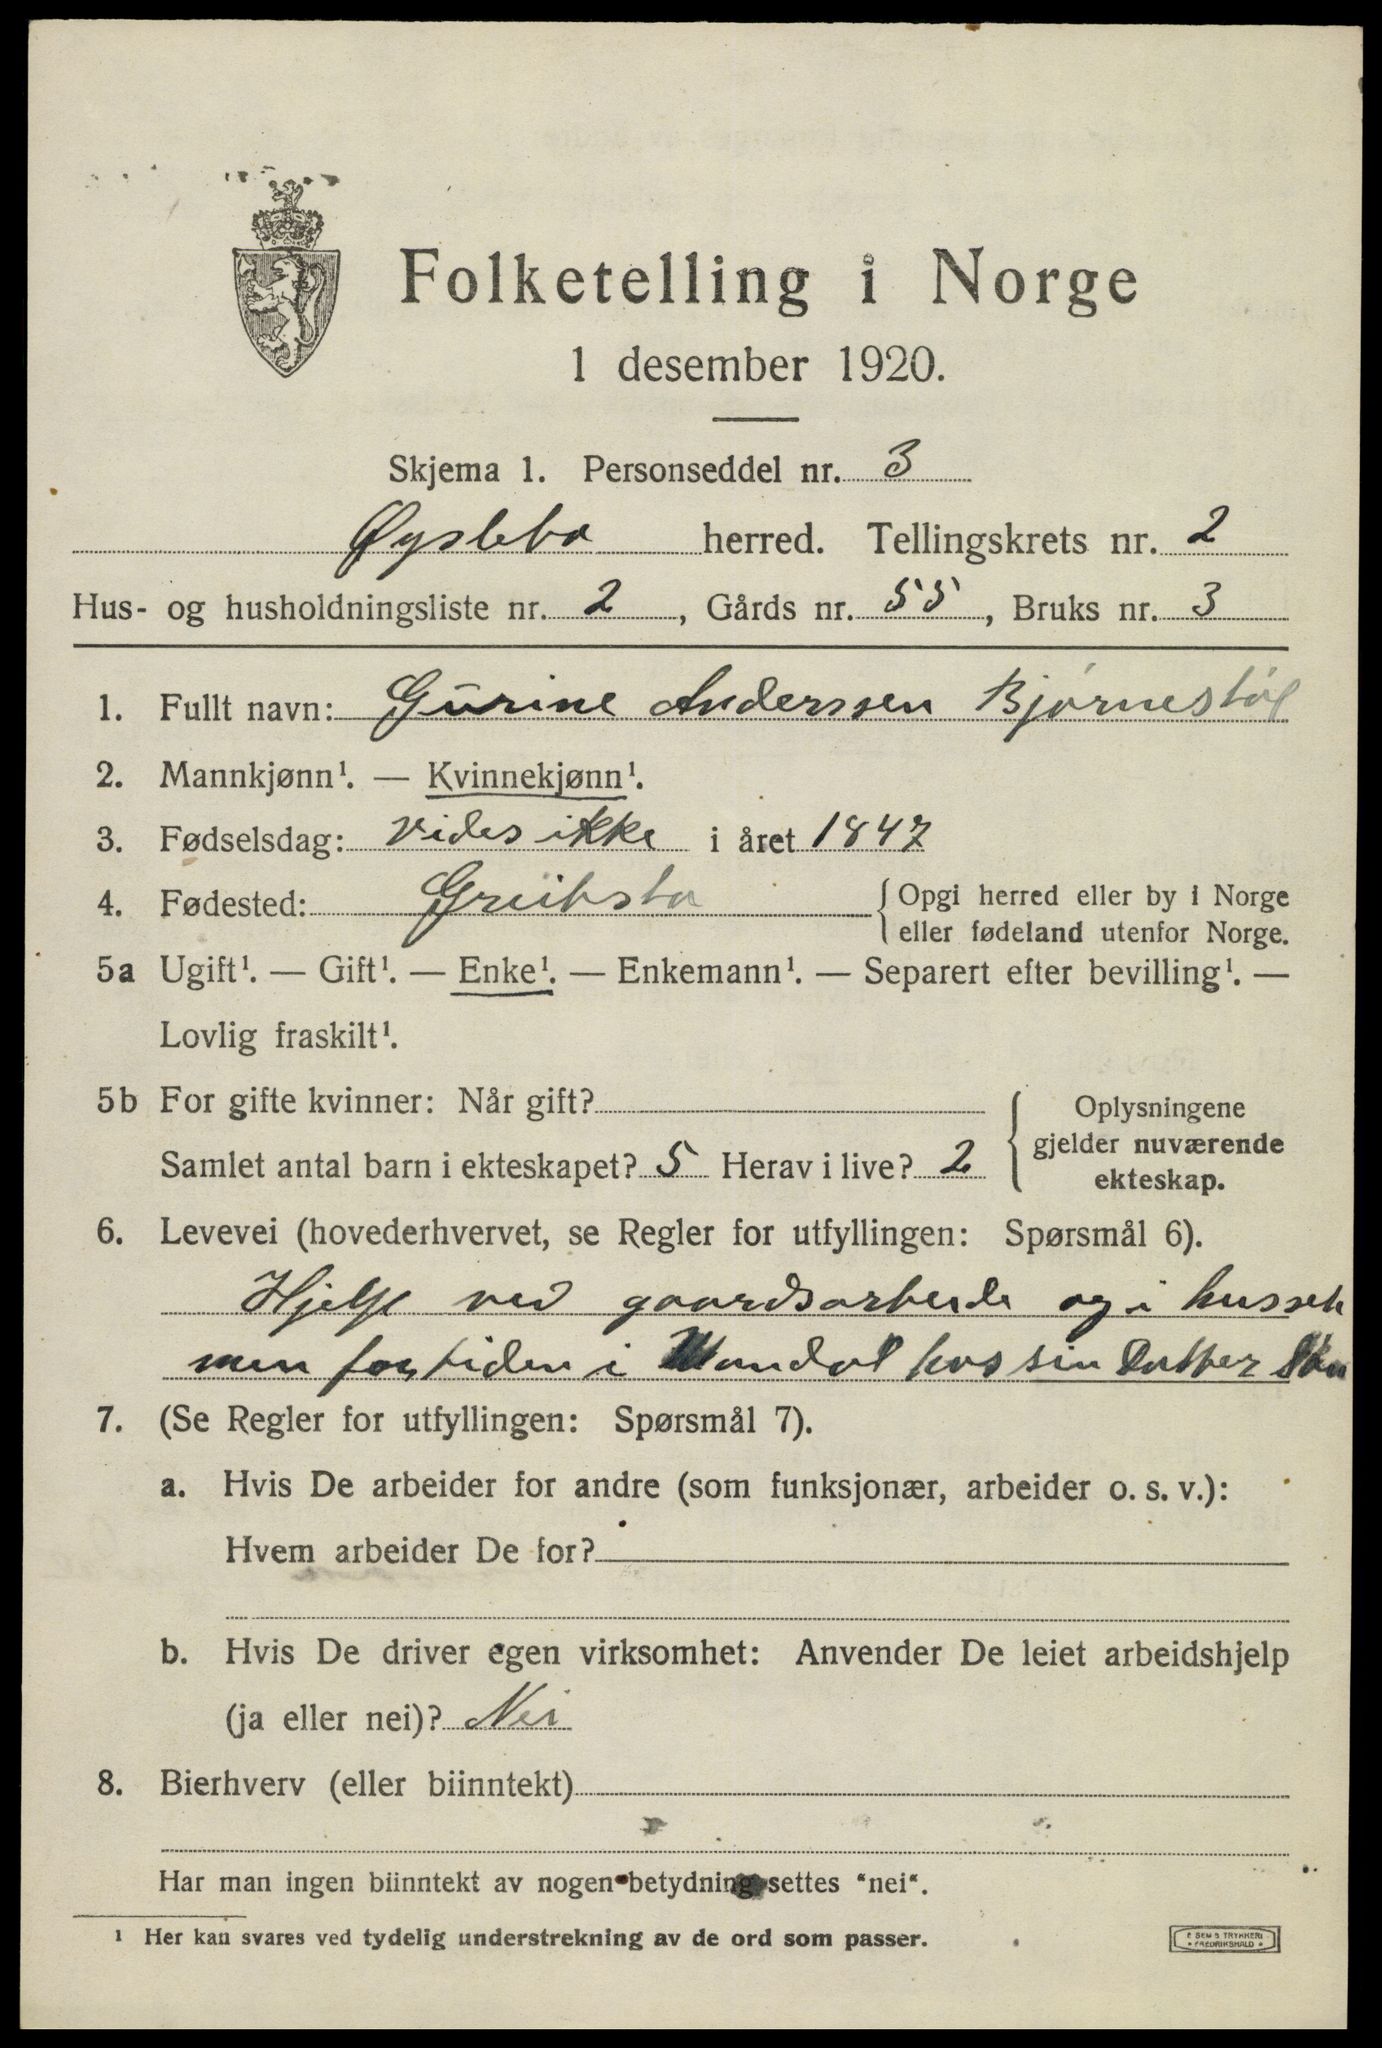 Folketelling i Norge
1 desember 1920.
Skjema 1. Personseddel nr. 3
Øyslebø herred. Tellingskrets nr. 2
Hus- og husholdningsliste nr. 2, Gårds nr. 55, Bruks nr. 3
1. Fullt navn: Gurine Anderssen Bjørnestøl
2. Mannkjønn¹. — Kvinnekjønn¹.
3. Fødselsdag: vides ikke i året 1847
4. Fødested: { Opgi herred eller by i Norge
eller fødeland utenfor Norge.
5a Ugift¹. — Gift¹. — Enke¹. — Enkemann¹. — Separert efter bevilling¹. —
Lovlig fraskilt¹.
5b For gifte kvinner: Når gift? { Oplysningene
gjelder nuværende
ekteskap.
Samlet antal barn i ekteskapet? 5 Herav i live? 2
6. Levevei (hovederhvervet, se Regler for utfyllingen: Spørsmål 6).
Hjelp ved gaardsarbeide og i husset
men for tiden i Mandal hos sin Datter
7. (Se Regler for utfyllingen: Spørsmål 7).
a. Hvis De arbeider for andre (som funksjonær, arbeider o. s. v.):
Hvem arbeider De for?
b. Hvis De driver egen virksomhet: Anvender De leiet arbeidshjelp
(ja eller nei)? Nei
8. Bierhverv (eller biinntekt)
Har man ingen biinntekt av nogen betydning settes "nei".
¹ Her kan svares ved tydelig understrekning av de ord som passer.
E SEM'S TRYKKERI
FREDRIKSHALD